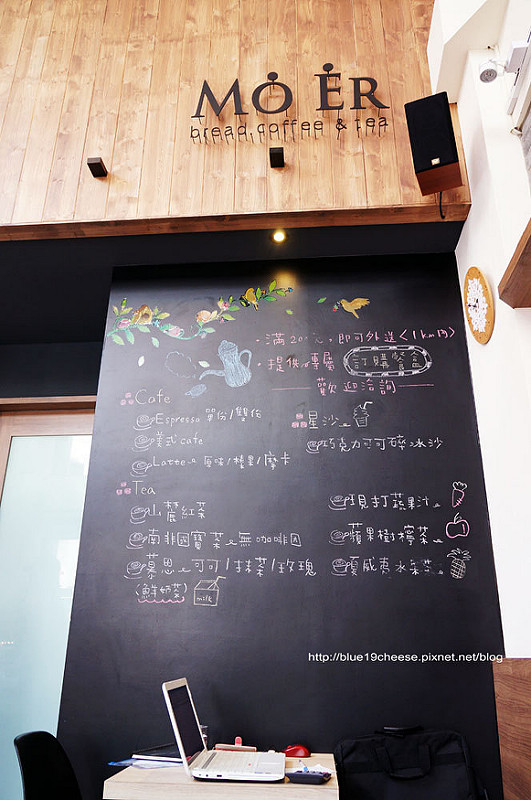 MO ER
bread, coffee & tea
提供專屬 訂購餐盒
歡迎洽詢
Cafe
Espresso 單份/雙份
美式 cafe
Latte 原味/榛果/摩卡
Tea
南非國寶茶 無咖啡因
慕思 可可/抹茶/玫瑰
(鮮奶茶)
milk
星沙
巧克力可可碎冰沙
現打蔬果汁
蘋果樹檸茶
夏威夷水果茶
http://blue19cheese.pixnet.net/blog